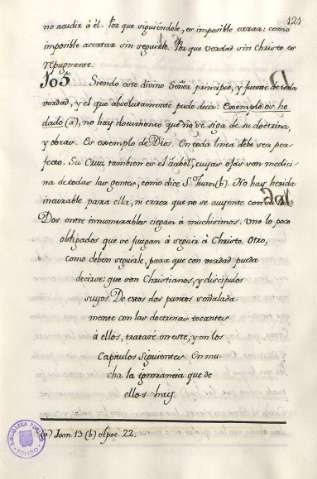 121
no acudir à él. Por que siguiendole, es imposible errar: como
imposible acertar sin seguirle. Por que verdad sin Christo es
repugnante.
No 5 Siendo este divino Señor principio, y fuente de toda
verdad, y el que absolutamente pudo decir: Exemplo os he
dado (a), no hay documento que no se siga de su doctrina,
y obras. Es exemplo de Dios. En toda linea debe ser per-
fecto. Su Cruz tambien es el árbol, cuyas ojas son medici-
na de todas las gentes, como dice S. Juan (b). No hay herida
incurable para ella, ni error que no se auyente con
Dos entre innumerables ciegan à muchisimos. Uno lo poco
obligados que se juzgan à seguir à Christo. Otro,
como deben seguirle, para que con verdad pueda
decirse: que son Christianos, y discipulos
suyos. De estos dos puntos señalada-
mente con las doctrinas tocantes
à ellos, trataré en este, y en los
Capitulos siguientes. En mu-
cha la ignorancia que de
ellos hay.
(a) Joan. 13 (b) Apoc. 22.
BIBLIOTECA PUBLICA
TOLEDO